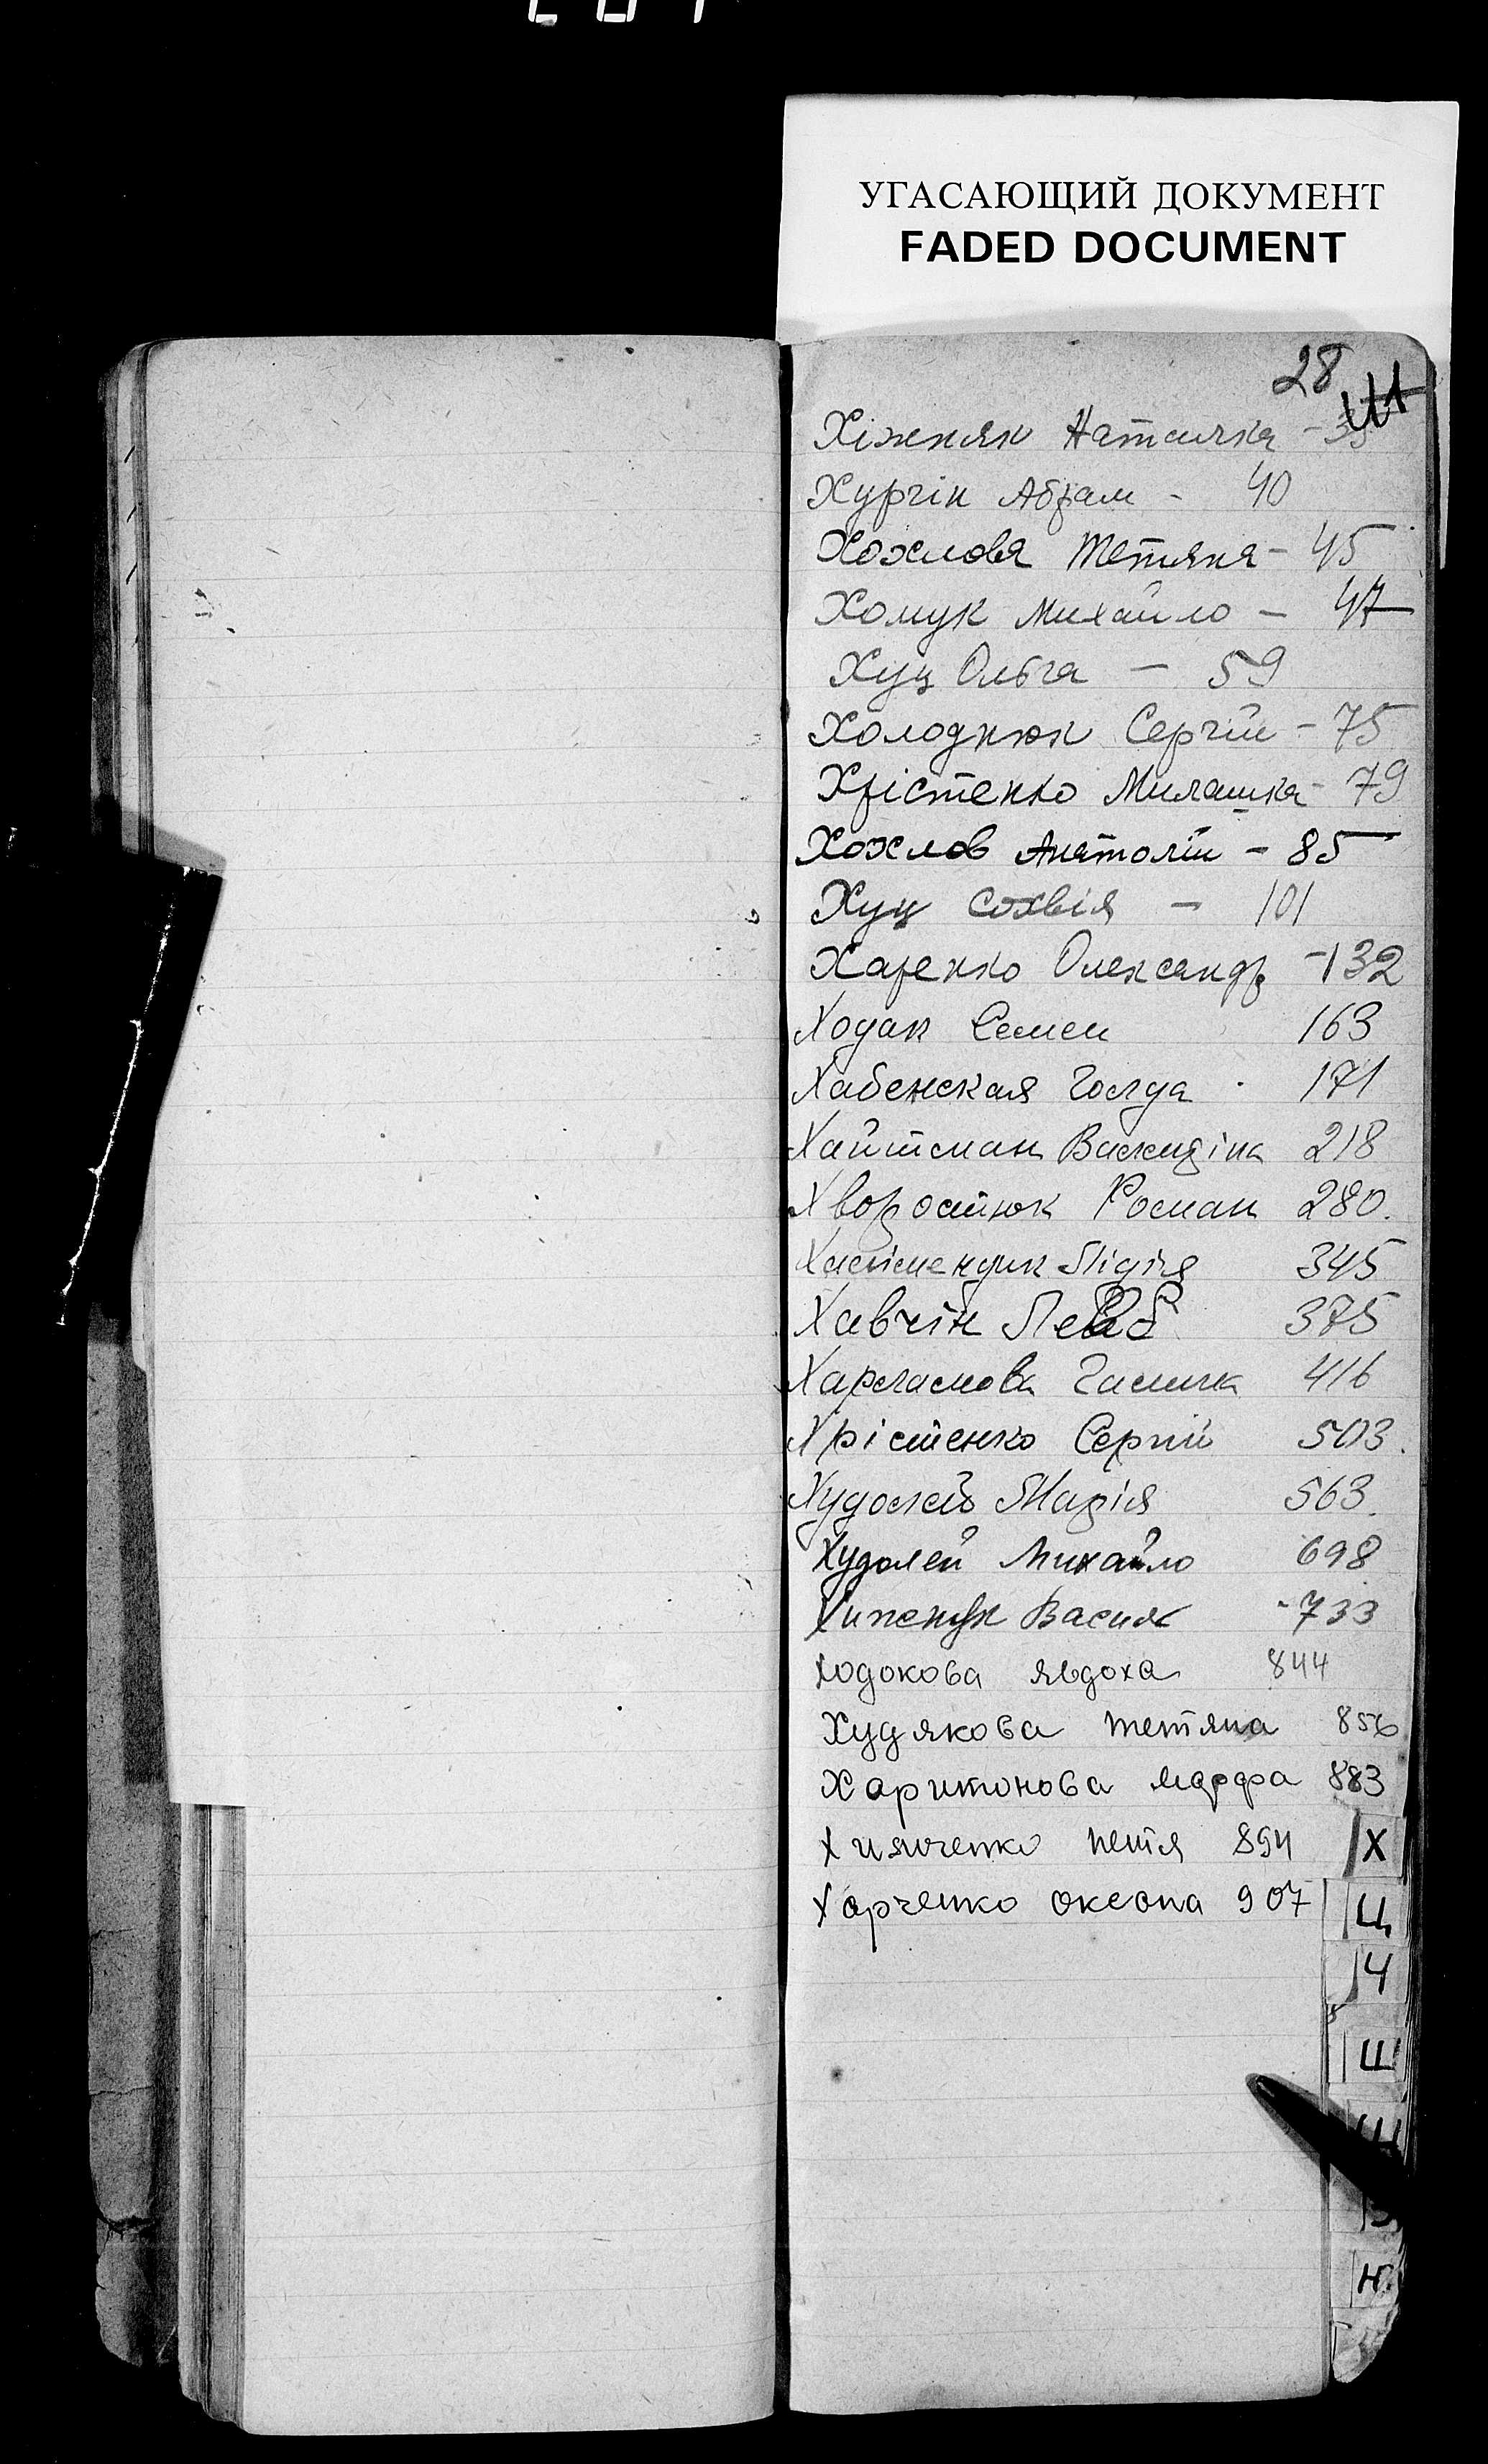 УГАСАЮЩИЙ ДОКУМЕНТ
FADED DOCUMENT
28
Хіжняк Наталка - 35
Хургін Абрам - 40
Хохлова Тетяна - 45
Хомук Михайло - 47
Хуц Ольга - 59
Холоднюк Сергій - 75
Хрістенко Милашка - 79
Хохлов Анатолій - 85
Хуц Сохвія - 101
Харенко Олександр - 132
Ходак Семен 163
Хабенская Голда 171
Хайтман 218
Хворостюк Роман 280.
Лідія 345
Хавчін Лев 375
Харламова Галина 416
Хрістенко Сергій 503.
Худолей Марія 563.
Худолей Михайло 698
Василь - 733
Ходокова Явдоха 844
Худякова Тетяна 856
Харитонова Марфа 883
Петя 894
Харченко Оксана 907
Х
Ц
Ч
Ш